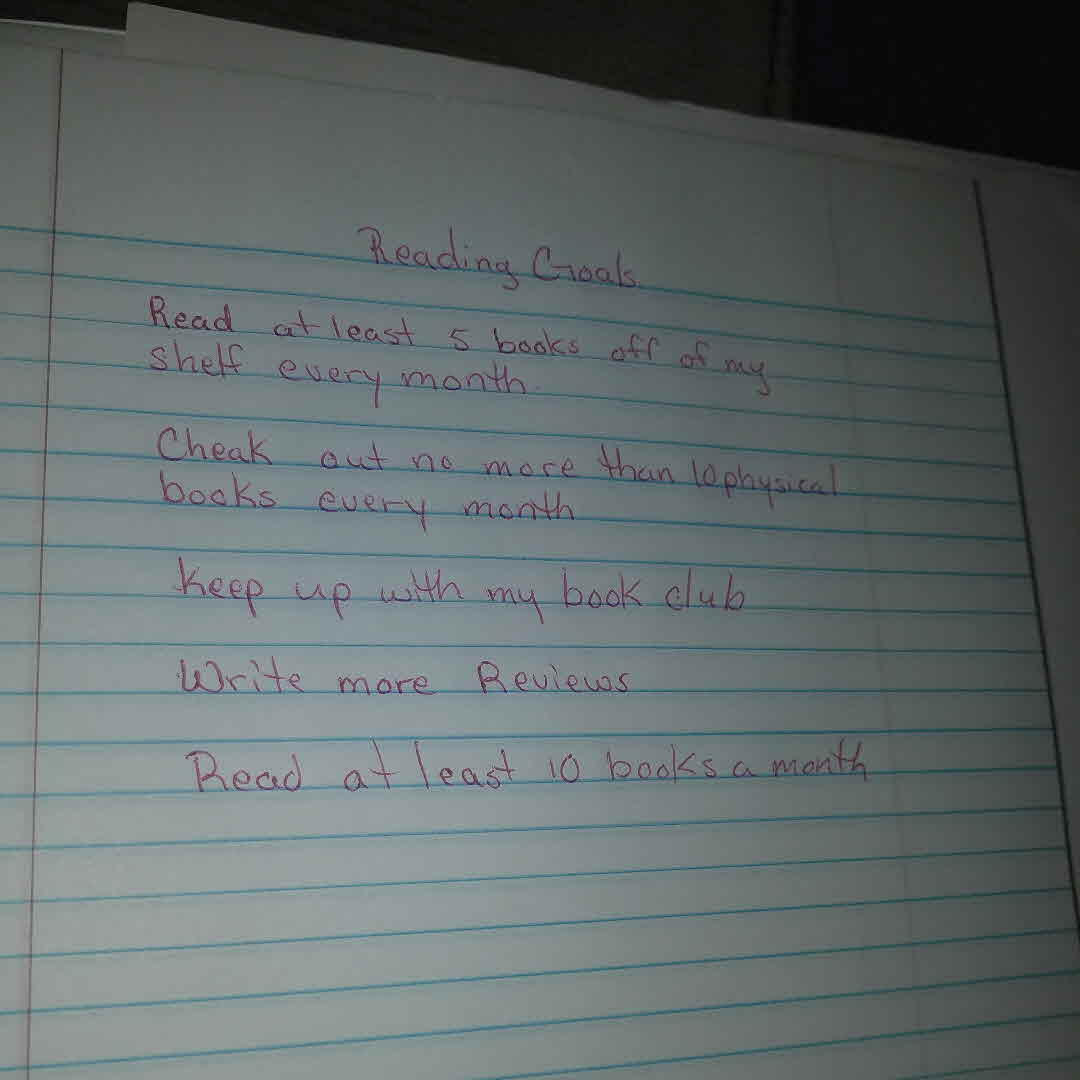 Reading Goals
Read at least 5 books off of my
shelf every month
Cheak out no more than 10 physical
books every month
Keep up with my book club
Write more Reviews
Read at least 10 books a month